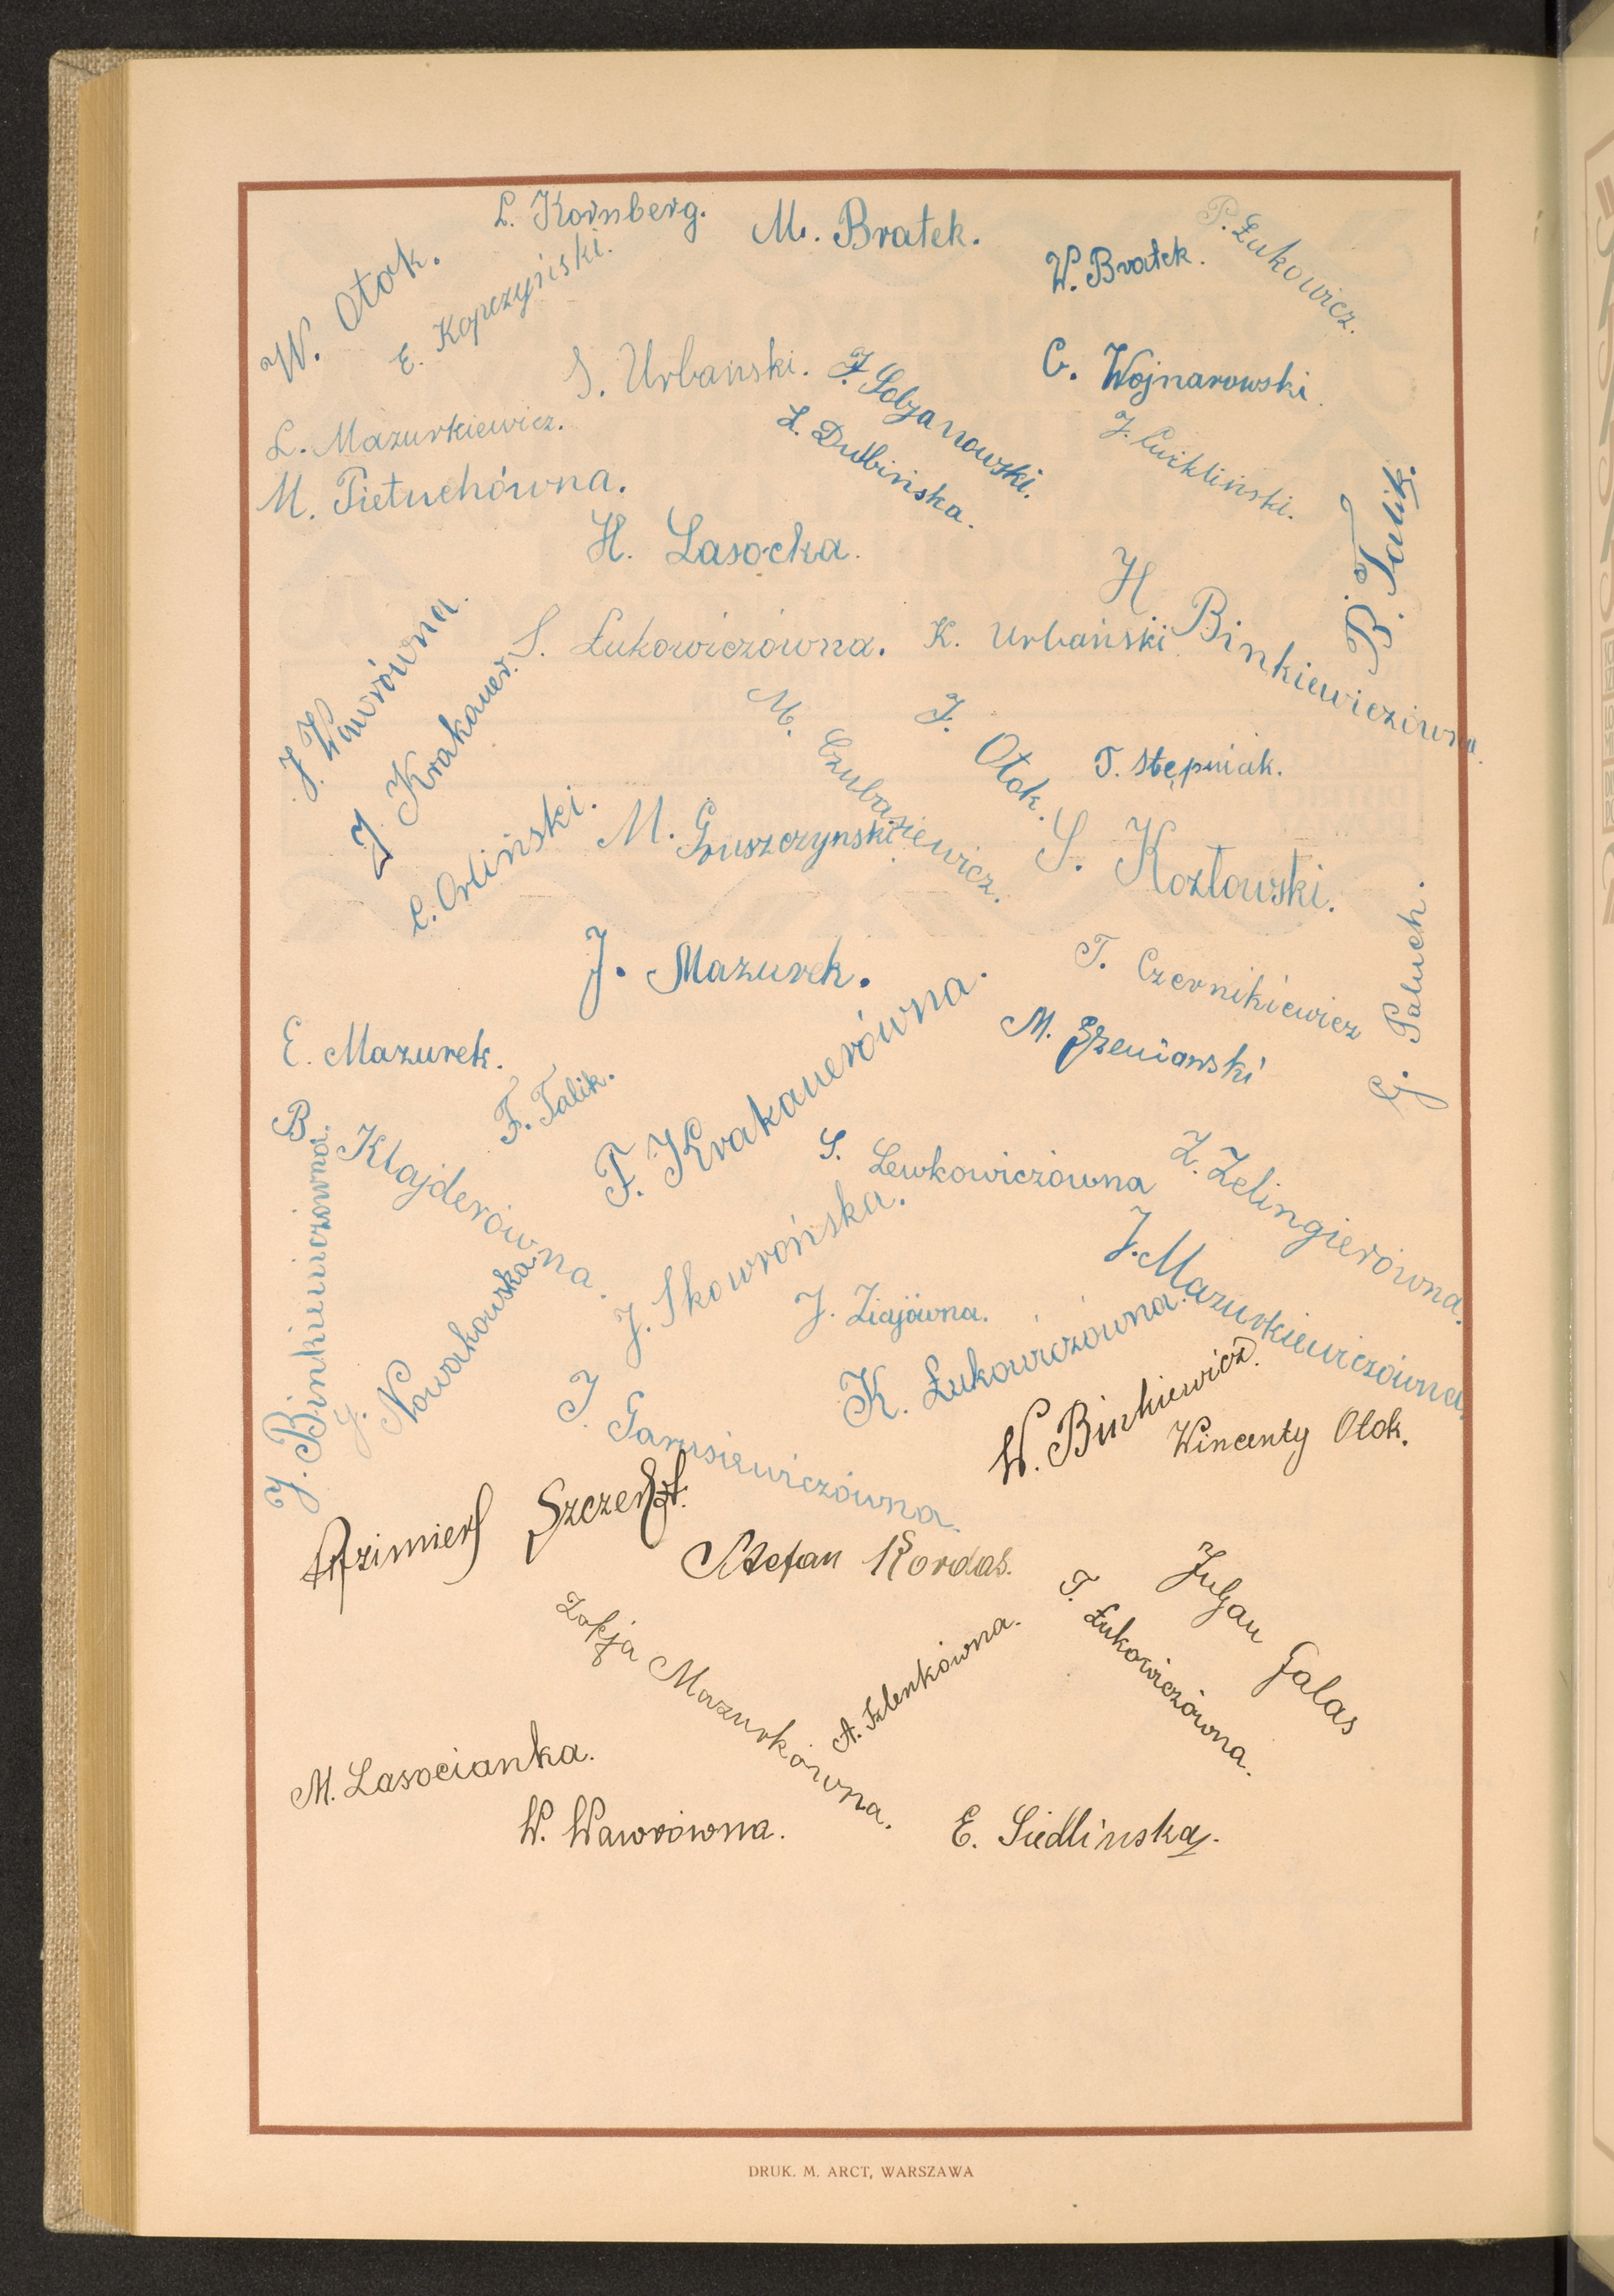 L. Kornberg.
M. Bratek.
P. Łukowicz.
W. Bratek.
W. Otok.
E. Kopczyński.
S. Urbański.
J. Sobjanowski.
C. Wojnarowski.
L. Mazurkiewicz.
L. Dubińska.
J. Ćwikliński.
M. Pietuchówna.
B. Talik.
H. Lasocka.
H. Binkiewiczówna.
J. Wawrówna.
S. Łukowiczówna.
K. Urbański
J. Krakauer.
M. Czubasiewicz.
J. Otok.
T. Stępniak.
C. Orliński.
M. Gruszczynski
S. Kozłowski.
J. Mazurek.
T. Czernikiewicz
G. Paluch.
E. Mazurek.
M.
F. Talik.
F. Krakauerówna.
B Klajderówna.
S. Lewkowiczówna
Z. Zelingierówna.
J. Binkiewiczówna.
J. Nowakowska
J. Skowrońska.
J. Ziajówna.
J. Mazurkiewiczówna.
J. Garusiewiczówna.
K. Łukowiczówna.
W. Binkiewicz.
Wincenty Otok.
Stefan Kordas.
Juljan Galas
Zofja Mazurkówna.
A.
T. Łukowiczówna.
M. Lasocianka.
W. Wawrówna.
E. Siedlinska.
DRUK. M. ARCT, WARSZAWA